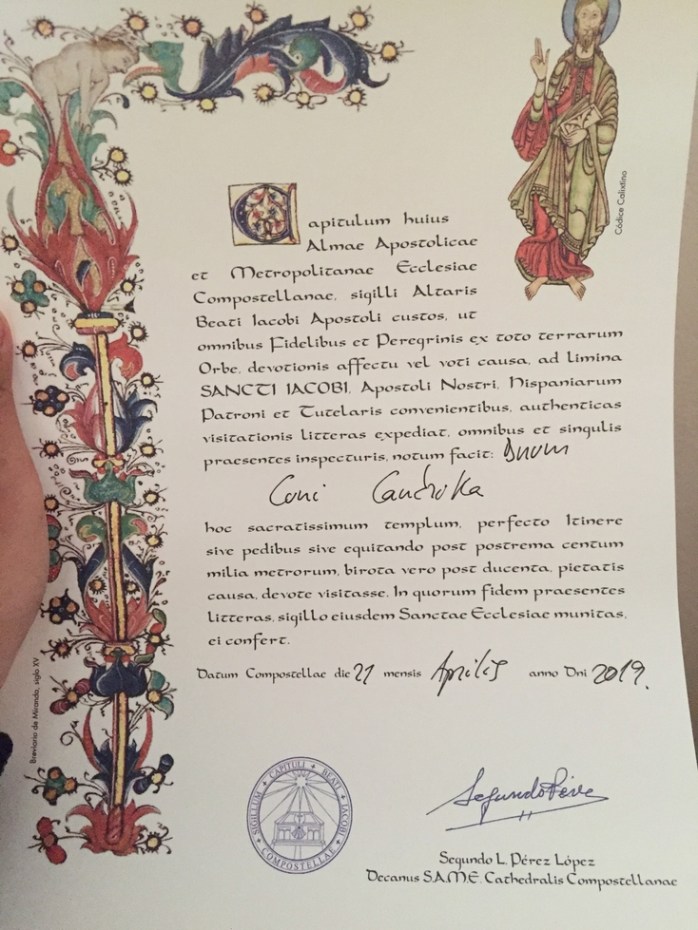 Códice Calixtino
Capitulum huius
Almae Apostolicae
et Metropolitanae Ecclesiae
Compostellanae, sigilli Altaris
Beati Iacobi Apostoli custos, ut
omnibus Fidelibus et Peregrinis ex toto terrarum
Orbe, devotionis affectu vel voti causa, ad limina
SANCTI IACOBI, Apostoli Nostri, Hispaniarum
Patroni et Tutelaris convenientibus, authenticas
visitationis litteras expediat, omnibus et singulis
praesentes inspecturis, notum facit: Dnum
hoc sacratissimum templum, perfecto Itinere
sive pedibus sive equitando post postrema centum
milia metrorum, birota vero post ducenta, pietatis
causa, devote visitasse. In quorum fidem praesentes
litteras, sigillo eiusdem Sanctae Ecclesiae munitas,
ei confert.
Datum Compostellae die 21 mensis Aprilis anno Dni 2019.
Breviario de Miranda, siglo XV
SIGILLUM CAPITULI BEATI IACOBI
COMPOSTELLAE
Segundo L. Pérez López
Decanus S.A.M.E. Cathedralis Compostellanae